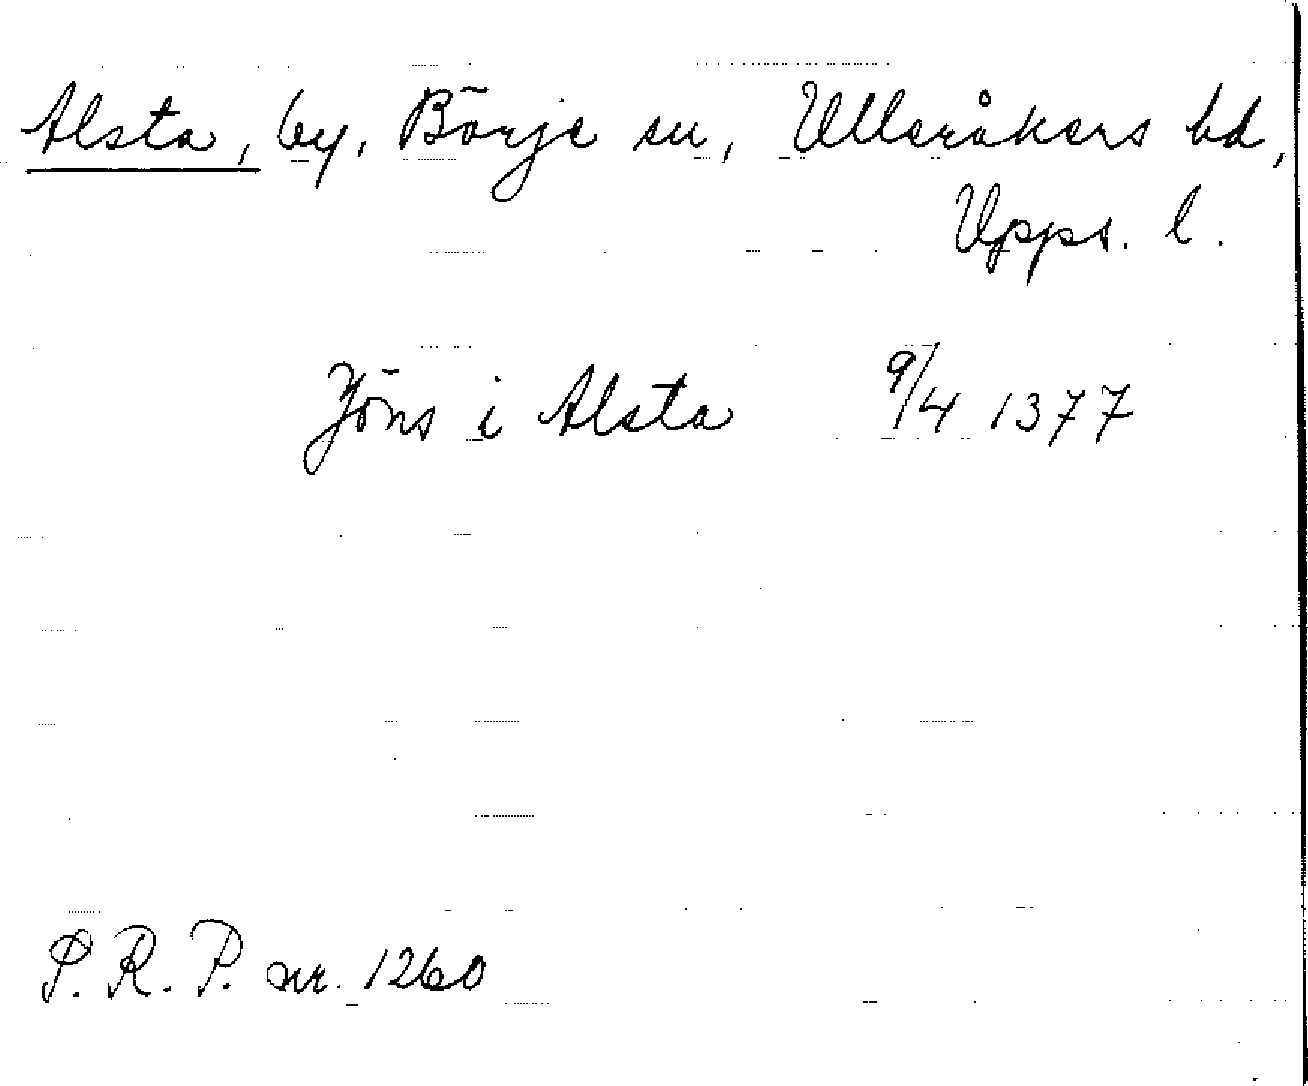 Alsta, by, Börje sn, Ulleråkers hd,
Upps. l.
Jöns i Alsta 9/4 1377
S. R. P. nr. 1260